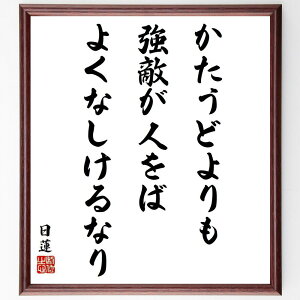 かたうどよりも
強敵が人をば
よくなしけるなり
日蓮